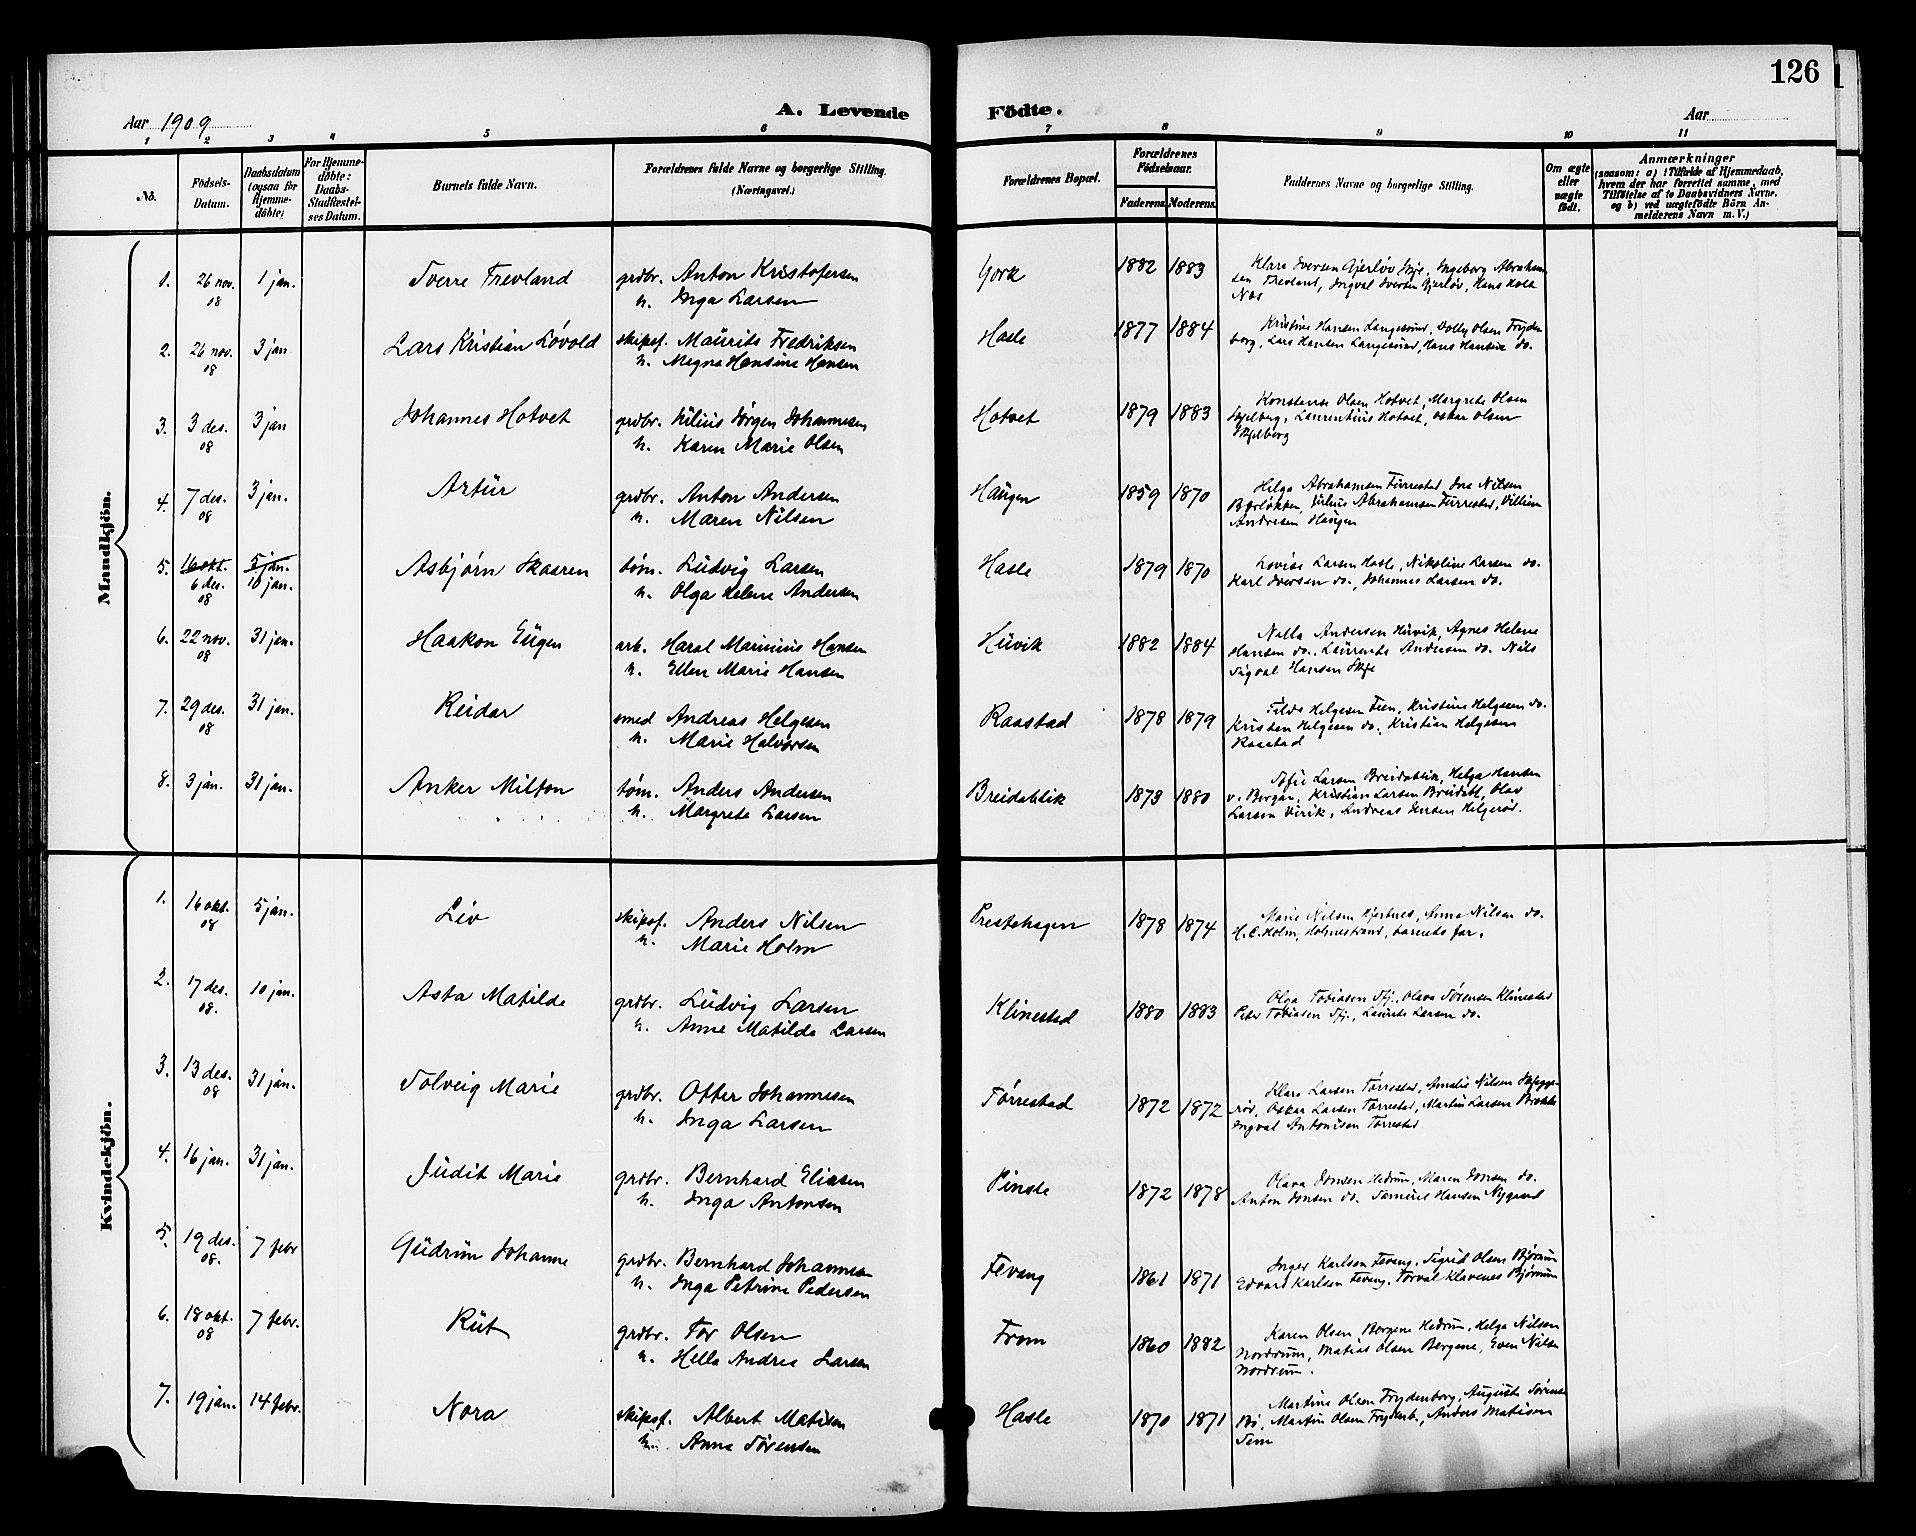 126
Aar 1909
A. Levende Födte.
Aar
1 2 3 4 5 6 7 8 9 10 11
No.
Födsels-
Datum.
Daabsdatum
(ogsaa for
Hjemme-
döbte)
For Hjemme-
döbte:
Daabs-
Stadfæstel-
ses Datum.
Barnets fulde Navn.
Forældrenes fulde Navne og borgerlige Stilling.
(Næringsvei.)
Forældrenes Bopæl.
Forældrenes
Födselsaar.
Faderens
Moderens
Faddernes Navne og borgerlige Stilling.
Om ægte
eller
uægte
födt.
Anmærkninger
(saasom: a) i Tilfælde af Hjemmedaab,
hvem der har forrettet samme, med
Tilföielse af to Daabsvidners Navne.
og b) ved uægtefödte Börn An-
melderens Navn m. V.)
Mandkjön.
1. 26 nov. 08 1 jan. Sverre Trevland grdbr. Anton Kristofersen York 1882 1883 Klara Iversen Gjerløv Skje, Ingeborg Abraham
h. Inga Larsen sen Trevland, Ingval Iversen Gjerløv, Hans Holt
Næs
2. 26 nov. 08 3 jan Lars Kristian Lövold skipsf. Maurits Fredriksen Hasle 1877 1884 Kristine Hansen Langesund, Dolly Olsen Fryden
h. Megna Hansine Hansen borg, Lars Hansen Langesund, Hans Hansen do.
3. 3 des. 08 3 jan Johannes Hotvet grdbr. Julius Jørgen Johannesen Hotvet 1879 1883 Konstanse Olsen Hotvet, Margrete Olsen
h. Karen Marie Olsen Skjelberg, Laurentius Hotvet, Oskar Olsen
Skjelberg
4. 7 des. 08 3 jan. Artur grdbr. Anton Andersen Haugen 1859 1870 Helga Abrahamsen Furrestad, Ina Nilsen
h. Maren Nilsen Bærløkken, Julius Abrahamsen Furrestad, Villiam
Andresen Haugen
5. 16 okt. 5 jan.
6 des. 08 10 jan. Asbjørn Skaaren tøm. Ludvig Larsen Hasle 1879 1870 Lovise Larsen Hasle, Nikoline Larsen do.
h. Olga Helene Andersen Karl Iversen do., Johannes Larsen do.
6. 22 nov. 08 31 jan. Haakon Eugen arb. Haral Marinius Hansen Huvik 1882 1884 Nalla Andersen Huvik, Agnes Helene
h. Ellen Marie Hansen Hansen do., Laurents Andersen do. Nils
Sigval Hansen Skje
7. 29 des. 08 31 jan. Reidar smed Andreas Helgesen Raastad 1878 1879 Tilda Helgesen Fien, Kristine Helgesen do.
h. Marie Halvorsen Kristen Helgesen do., Kristian Helgesen
Raastad
8. 3 jan. 31 jan. Anker Milton tøm. Anders Andersen Breidablik 1873 1880 Sofie Larsen Breidablik, Helga Hansen
h. Margrete Larsen v. Bergan, Kristian Larsen Breidabl, Olav
Larsen Virik, Andreas Jensen Helgerød.
Kvindekjön.
1. 16 okt. 08 5 jan. Liv skipsf. Anders Nilsen Prestehagen 1878 1874 Marie Nilsen Hjertnes, Anna Nilsen do.
h. Marie Holm H. C. Holm, Holmestrand, barnets far.
2. 17 des. 08. 10 jan. Asta Matilde grdbr. Ludvig Larsen Klinestad 1880 1883 Olga Tobiasen Sfj., Olava Sørensen Klinestad
h. Anne Matilde Larsen Peter Tobiasen Sfj., Laurits Larsen do.
3. 13 des. 08 31 jan. Solveig Marie grdbr. Otter Johannesen Tørrestad 1872 1872 Klara Larsen Tørrestad, Amalie Nilsen Skjegge-
h. Inga Larsen rød, Oskar Larsen Tørrestad, Martin Larsen Brekke
Ingval Antonisen Tørrestad
4. 16 jan. 31 jan. Judit Marie grdbr. Bernhard Eliasen Pinsle 1872 1878 Olava Jonsen Hedrum, Maren Jonsen do.
h. Inga Antonsen Anton Jonsen do. Samuel Hansen Nygaard
5. 19 des. 08. 7 febr Gudrun Johanne grdbr. Bernhard Johannesen Fevang 1861 1871 Inger Karlsen Fevang, Sigrid Olsen Bjørnum
h. Inga Petrine Pedersen Edvard Karlsen Fevang, Torval Klavenes Bjørnum
6. 18 okt. 08 7 febr. Rut grdbr. Tor Olsen From 1860 1882 Karen Olsen Bergene Hedrum, Helga Nilsen
h. Hella Andrea Larsen Nordrum, Matias Olsen Bergene, Even Nilsen
Nordrum.
7. 19 jan. 14 febr. Nora skipsf. Albert Matisen Hasle 1870 1871 Martine Olsen Frydenborg, Augusta Sørensen
h. Anna Sørensen Bø, Martin Olsen Frydenb., Anders Matisen
Sem